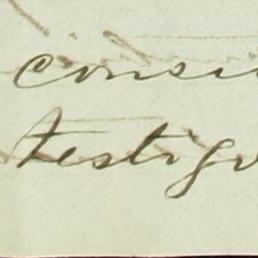 consi
testigo